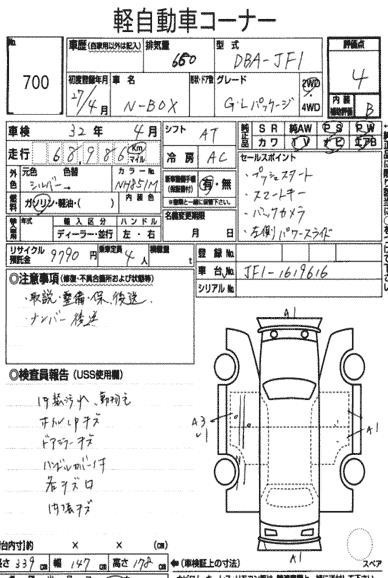 軽自動車コーナー
No. 700
車歴 (自家用以外は記入)
排気量 660
型式 DBA-JF1
評価点 4
初度登録年月 27/4月
車名 N-BOX
形状・ドア数
グレード G・Lパッケージ
2WD 4WD
内装補助評価 B
車検 32年 4月
シフト AT
純正品 SR 純AW PS PW
カワ TV ナビ エアB
走行 68,986 Km マイル
冷房 AC
セールスポイント
・プッシュスタート
・スマートキー
・バックカメラ
・左側パワースライド
外色 元色 シルバー 色替
カラーNo. NH851M
内装色
(保証書付) 有・無
燃料 ガソリン・軽油・( )
名義変更期限 月 日
輸入車用 輸入区分 ハンドル
ディーラー・並行 左・右
リサイクル預託金 9790 円
乗車定員 4 人
積載量 t
登録No.
車台No. JF1-1619616
シリアルNo.
◎注意事項 (修復・不具合箇所および状態等)
・取説・整備・保、後送
・ナンバー後送
◎検査員報告 (USS使用欄)
内装汚れ
ホイールキズ
ドアミラーキズ
内張キズ
A1
A3
A1
A1
台内寸)約 × × (cm)
長さ 339 cm 幅 147 cm 高さ 178 cm
(車検証上の寸法)
スペア